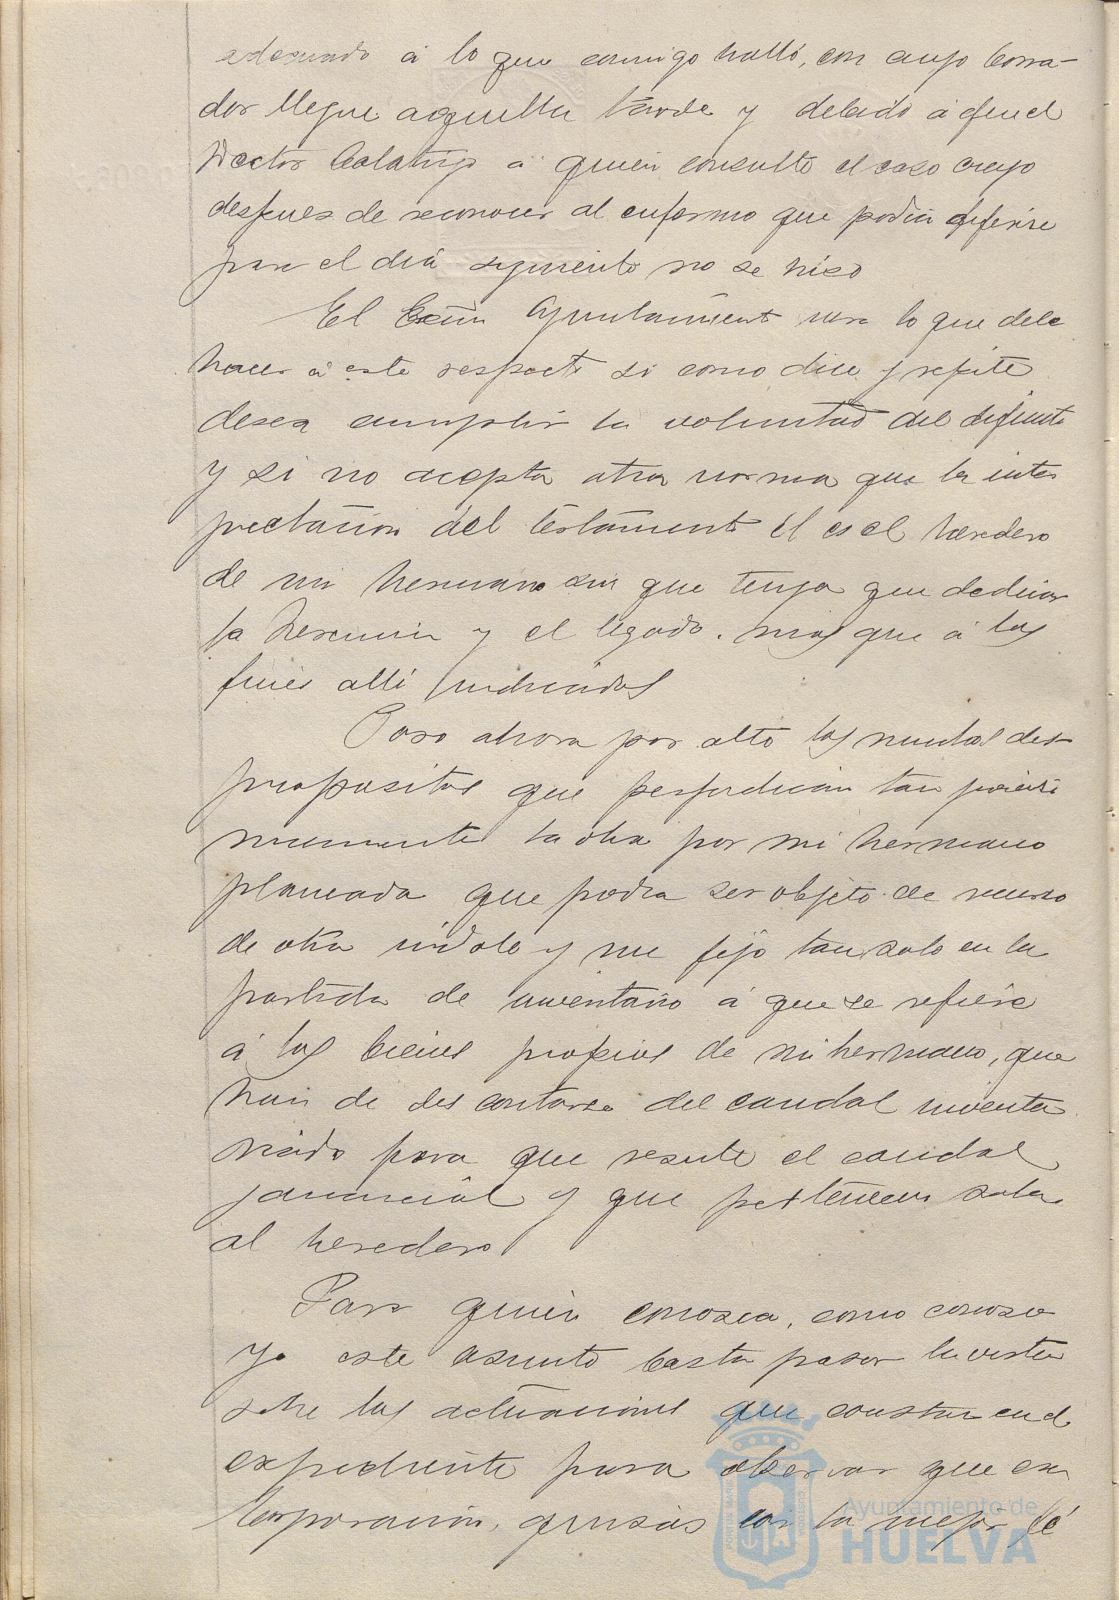 adecuado á lo que conmigo halló, con cuyo borra-
dor llegue aquella tarde y debido á que el
Doctor Calatrigo á quien consulté el caso creyo
despues de reconocer al enfermo que podia diferirse
para el dia siguiente no se hizo
El Excmo Ayuntamiento vera lo que debe
hacer á este respecto si como dice y repite
desea cumplir la voluntad del difunto
y si no acepta otra norma que la inter
pretacion del testamento él es el heredero
de mi hermano sin que tenga que dedicar
la herencia y el legado. mas que á los
fines alli indicados
Paso ahora por alto los muchos des-
propositos que perjudican tan
la obra por mi hermano
planeada que podra ser objeto de recurso
de otra indole y me fijo tan solo en la
partida de inventario á que se refiere
á los bienes propios de mi hermano, que
han de descontarse del caudal inventa
riado para que resulte el caudal
ganancial y que pertenecen solo
al heredero
Para quien conozca, como conozco
yo este asunto basta pasar la vista
sobre las actuaciones que constan en el
expediente para observar que esa
Corporacion, quizás con la mejor fé
Ayuntamiento de
HUELVA